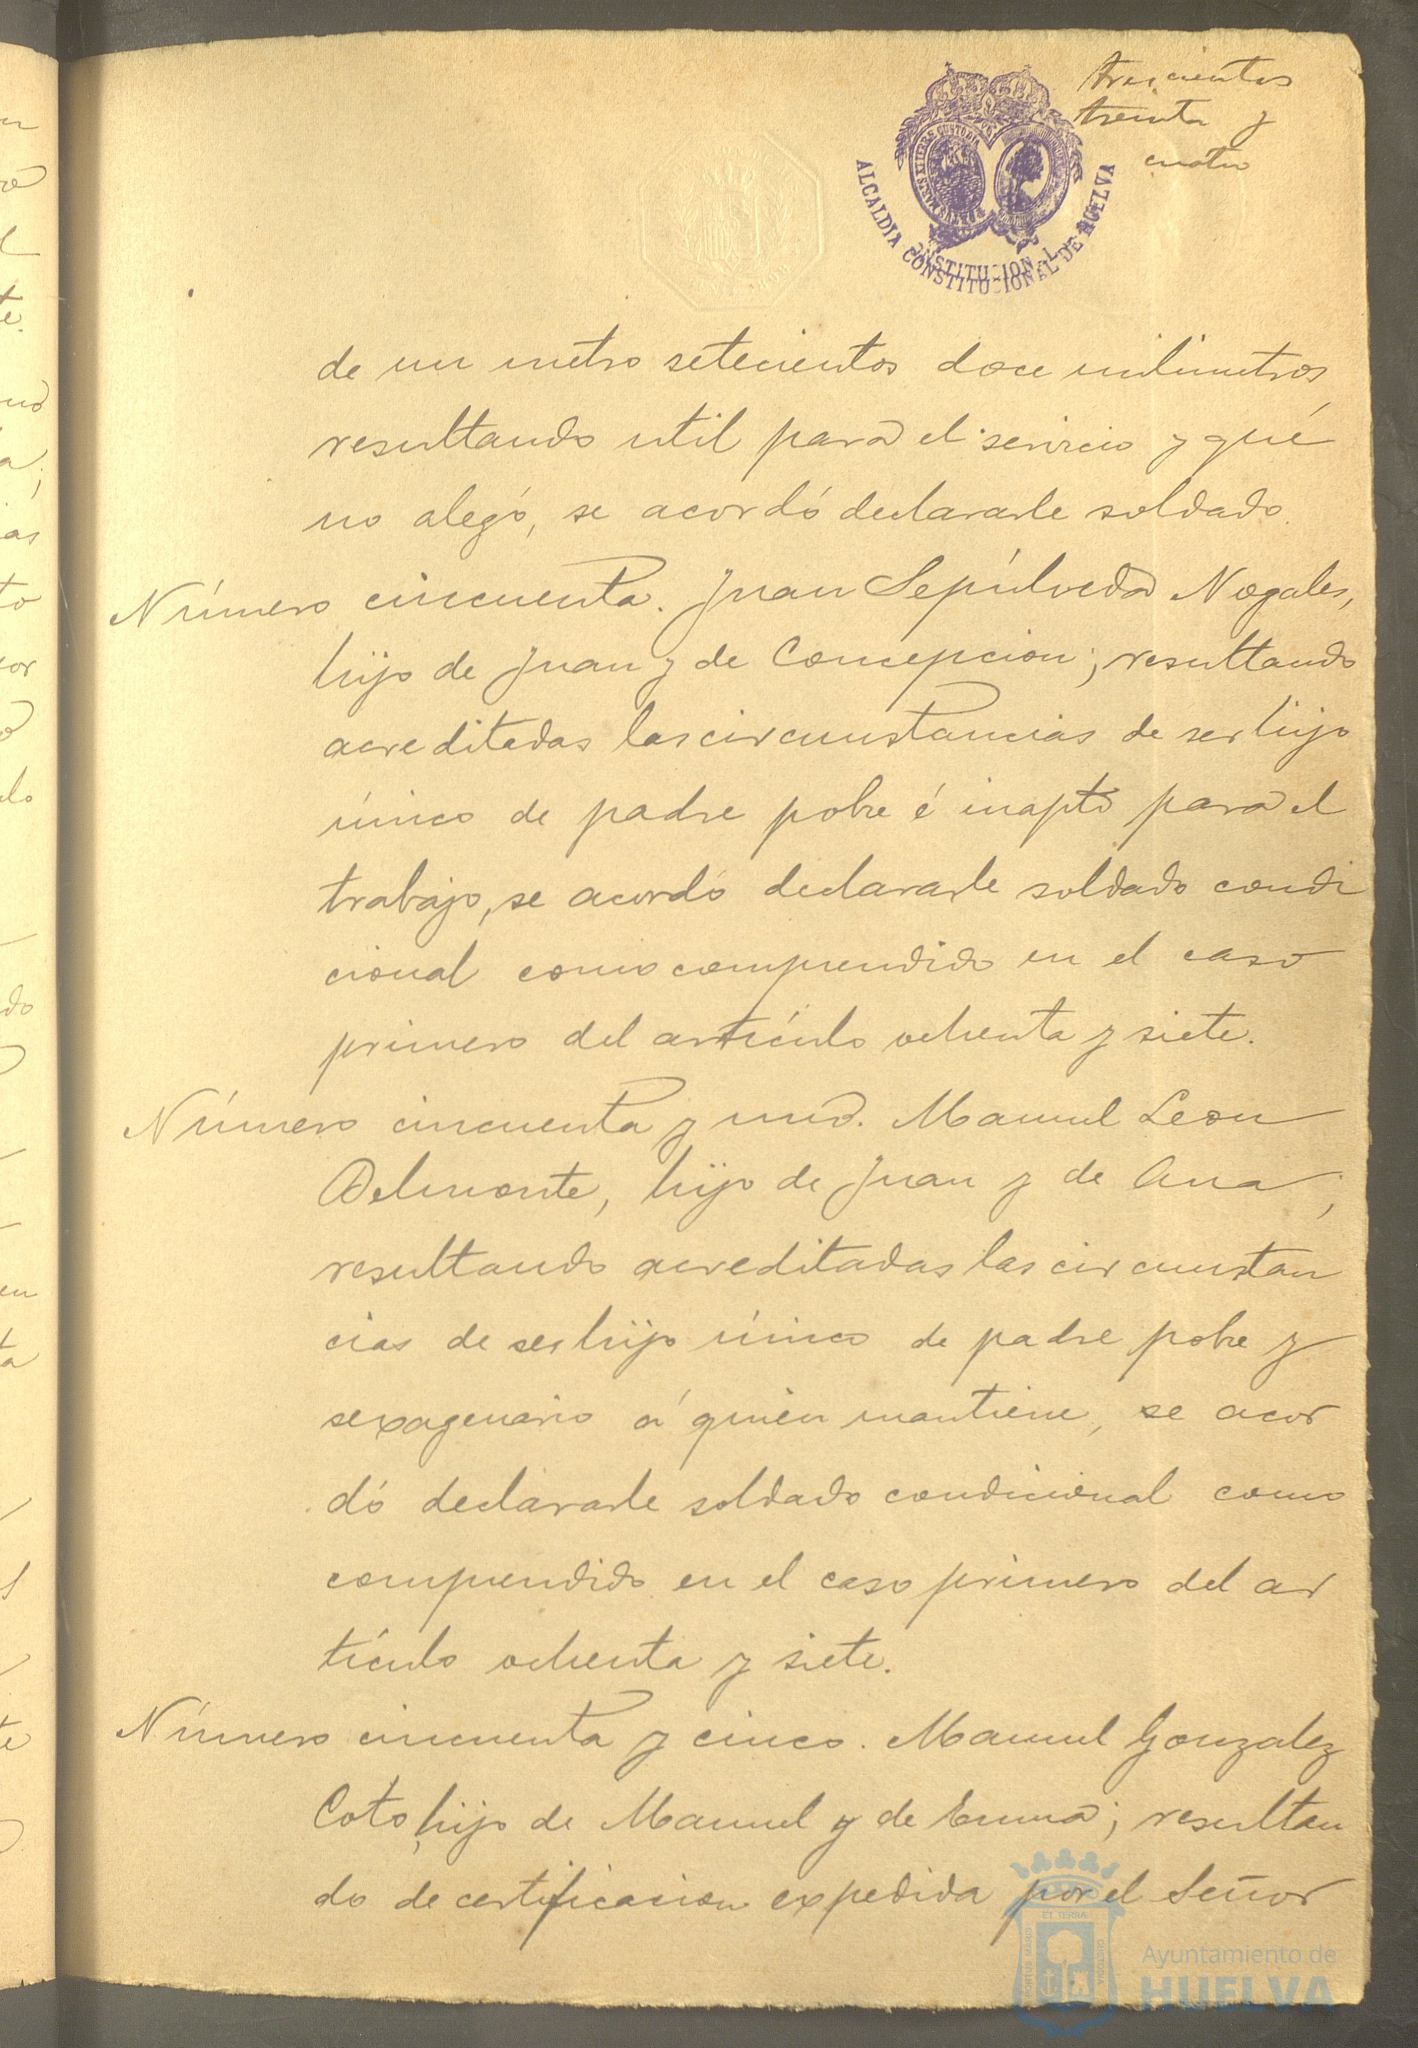 trescientos
treinta y
cuatro
ALCALDIA CONSTITUCIONAL DE HUELVA
de un metro setecientos doce milimetros,
resultando util para el servicio y qué
no alegó, se acordó declararle soldado.
Número cincuenta. Juan Sepúlveda Nogales,
hijo de Juan y de Concepcion; resultando
acreditadas las circunstancias de ser hijo
único de padre pobre é inapto para el
trabajo, se acordó declararle soldado condi
cional como comprendido en el caso
primero del artículo ochenta y siete.
Número cincuenta y uno. Manuel Leon
Belmonte, hijo de Juan y de Ana;
resultando acreditadas las circunstan
cias de ser hijo único de padre pobre y
sexagenario á quien mantiene, se acor
dó declararle soldado condicional como
comprendido en el caso primero del ar
tículo ochenta y siete.
Número cincuenta y cinco. Manuel Gonzalez
Coto, hijo de Manuel y de Emma; resultan
do de certificacion expedida por el Señor
Ayuntamiento de
HUELVA